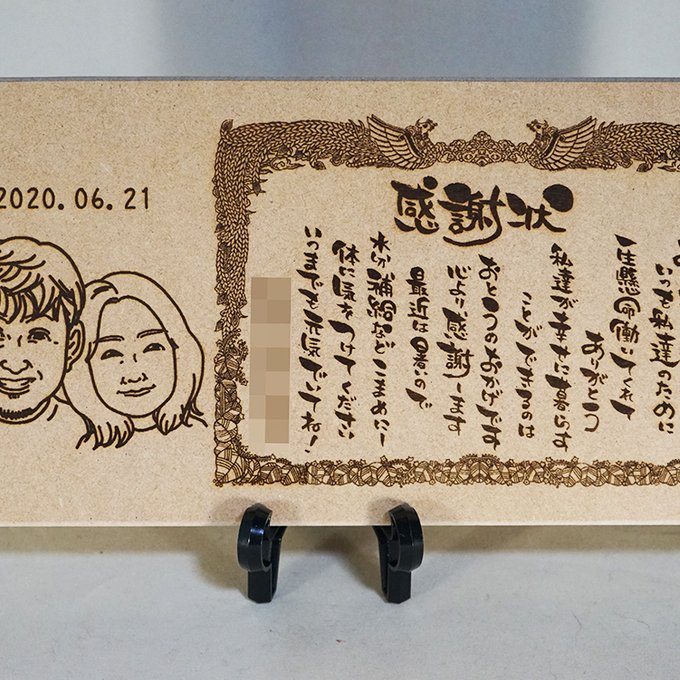 2020.06.21
感謝状
いつも私達のために
一生懸命働いてくれて
ありがとう
私達が幸せに暮らす
ことができるのは
おとうのおかげです
心より、感謝します
最近は暑いので
水分補給などこまめにし
体に気をつけてください
いつまでも元気でいてね!